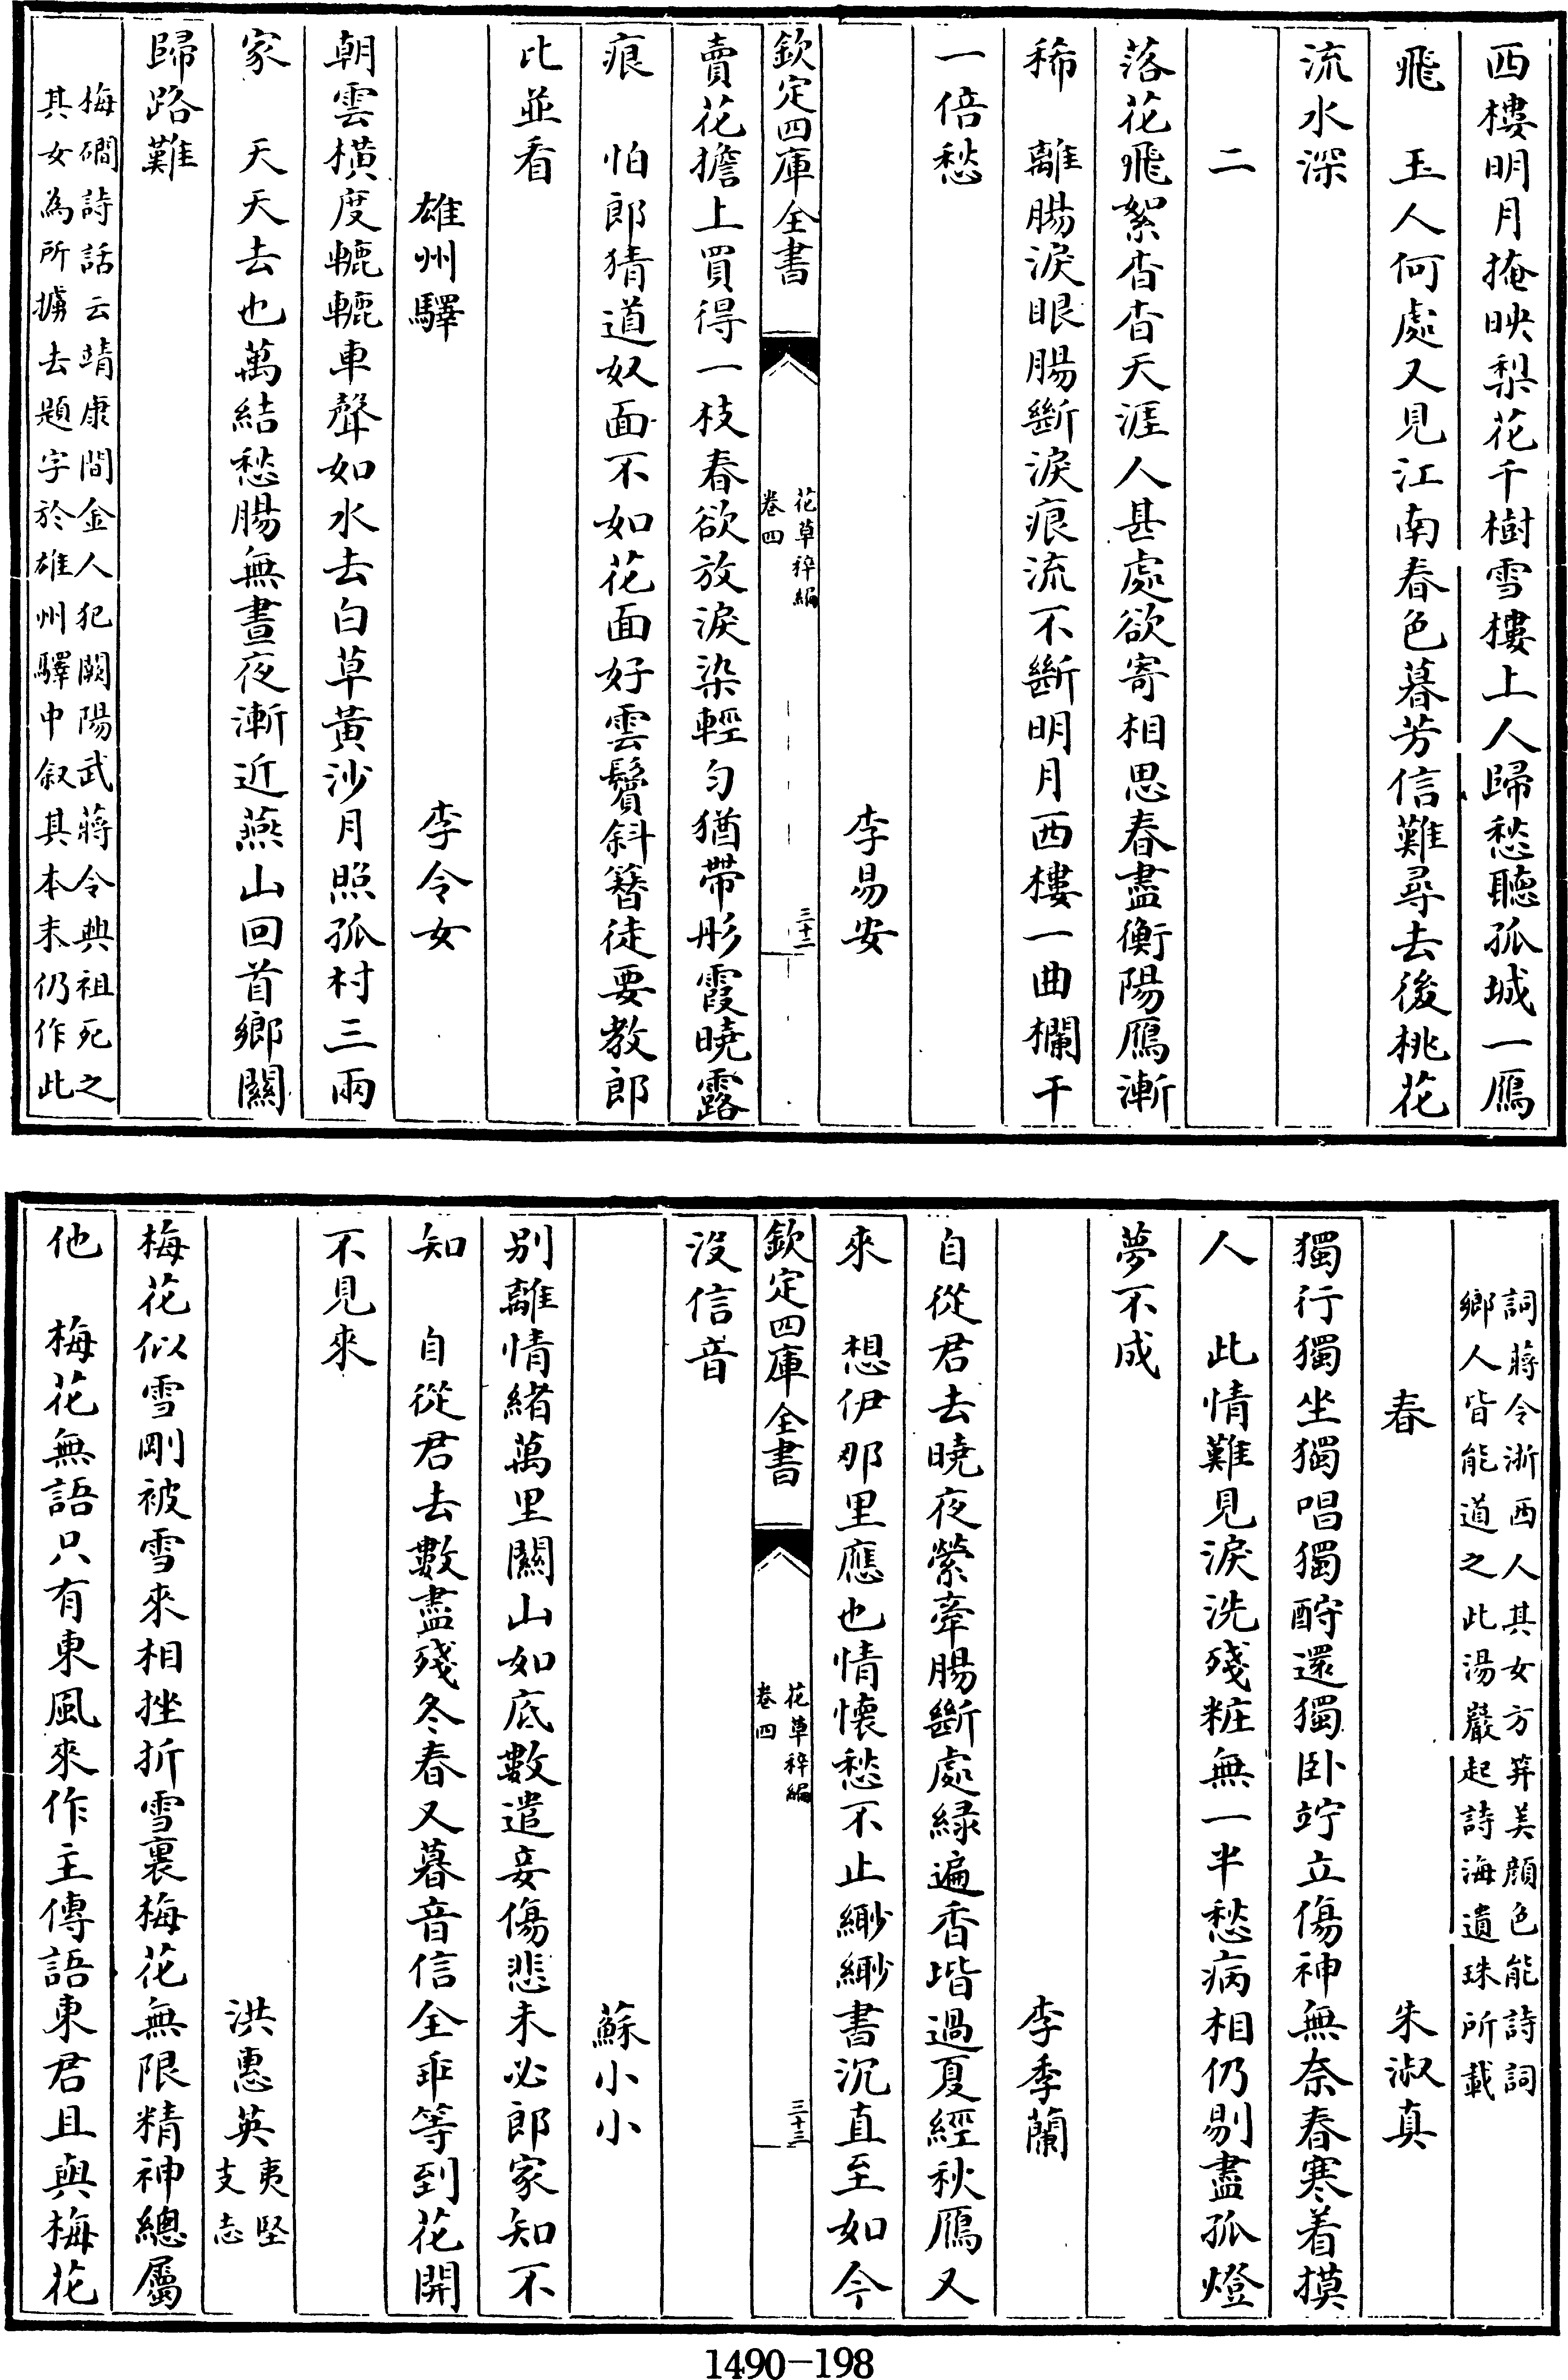 西樓明月掩映梨花千樹雪樓上人歸愁聽孤城一鴈
飛　玉人何處又見江南春色暮芳信難尋去後桃花
流水深
二
落花飛絮杳杳天涯人甚處欲寄相思春盡衡陽鴈漸
稀　離腸淚眼腸斷淚痕流不斷明月西樓一曲欄干
一倍愁
李易安
欽定四庫全書
花草稡編
卷四
三十二
賣花擔上買得一枝春欲放淚染輕勻猶帶彤霞曉露
痕　怕郎猜道奴面不如花面好雲鬢斜簪徒要教郎
比並看
雄州驛　李令女
朝雲橫度轆轆車聲如水去白草黃沙月照孤村三兩
家　天天去也萬結愁腸無晝夜漸近燕山回首鄉關
歸路難
梅磵詩話云靖康間金人犯闕陽武蔣令興祖死之
其女為所擄去題字於雄州驛中叙其本末仍作此
詞蔣令浙西人其女方笄美顔色能詩詞
鄉人皆能道之此湯巖起詩海遺珠所載
春　朱淑真
獨行獨坐獨唱獨酧還獨卧竚立傷神無奈春寒着摸
人　此情難見淚洗殘粧無一半愁病相仍剔盡孤燈
夢不成
李季蘭
自從君去曉夜縈牽腸斷處緑遍香堦過夏經秋鴈又
來　想伊那里應也情懷愁不止緲緲書沉直至如今
欽定四庫全書
花草稡編
卷四
三十三
没信音
蘇小小
别離情緒萬里關山如底數遣妾傷悲未必郎家知不
知　自從君去數盡殘冬春又暮音信全乖等到花開
不見來
洪惠英夷堅
支志
梅花似雪剛被雪來相挫折雪裏梅花無限精神總屬
他　梅花無語只有東風來作主傳語東君且與梅花
1490-198